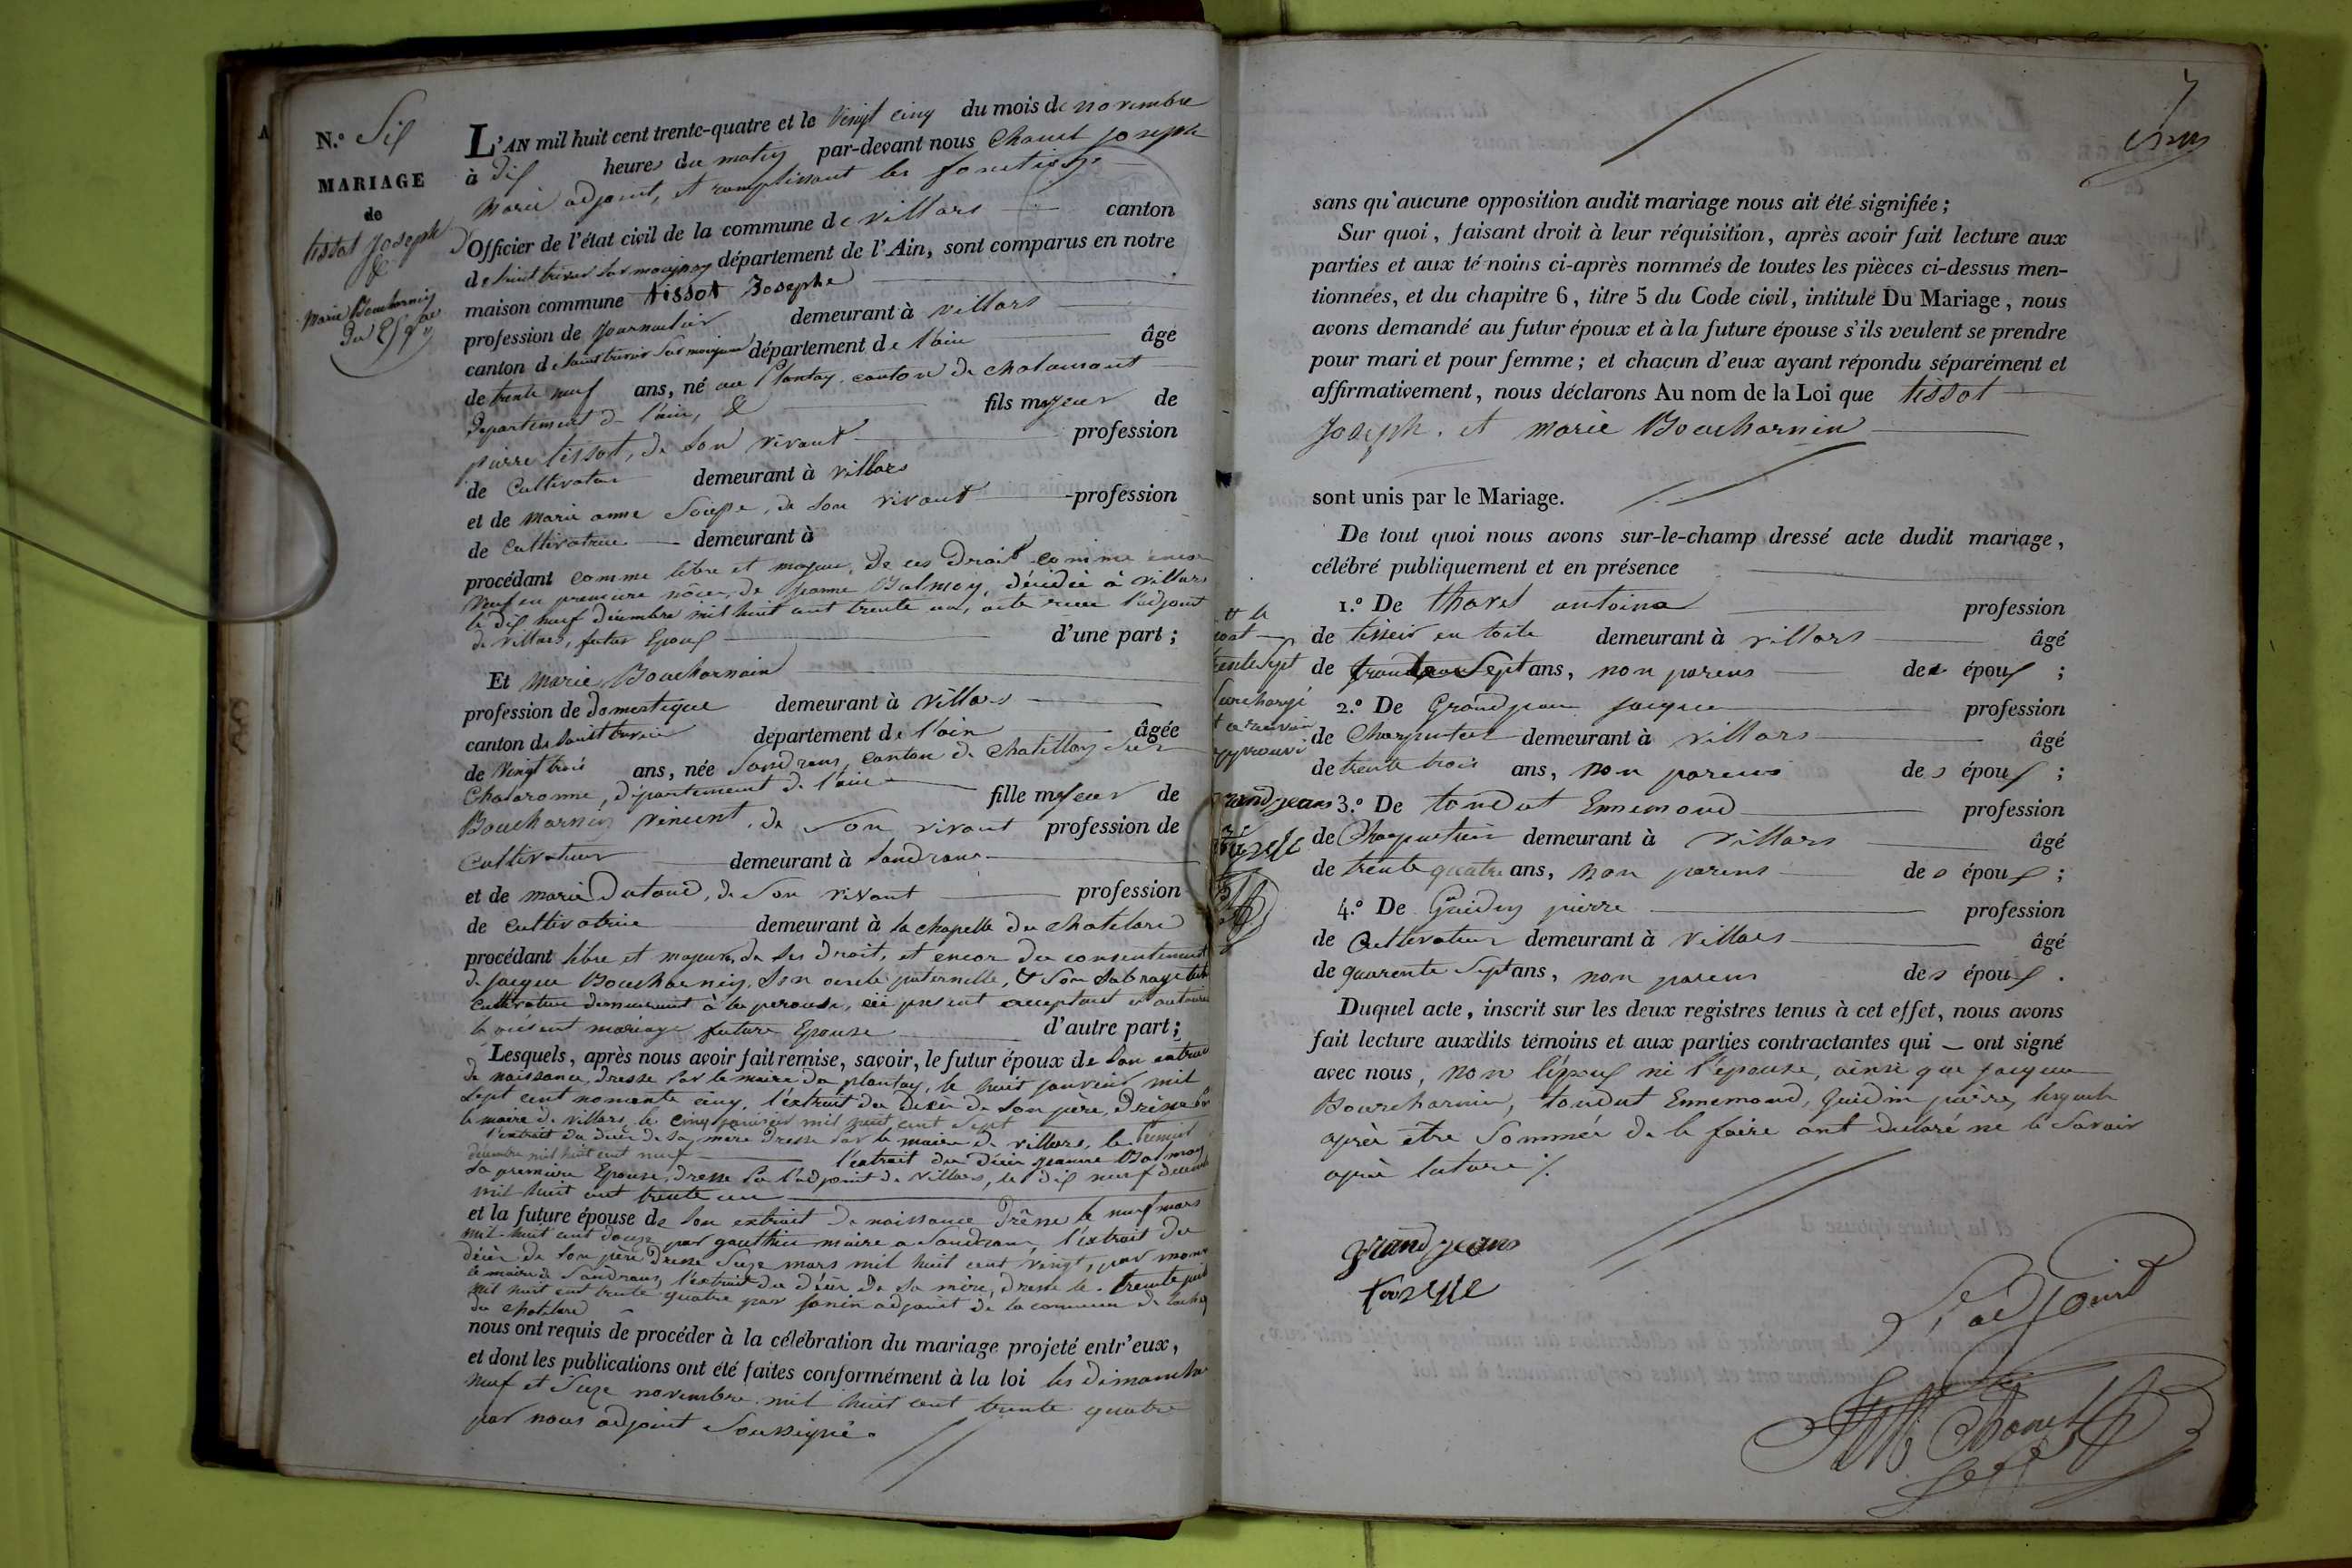 N.º Six
MARIAGE
de
tissot Joseph
&
Marie Boucharnin
L'AN mil huit cent trente-quatre et le vingt cinq du mois de novembre
à dix heures du matin par-devant nous Chanel Joseph
Marie adjoint, et remplissant les fonctions
d'Officier de l'état civil de la commune de villars canton
de Saint trivier sur moignan département de l'Ain, sont comparus en notre
maison commune tissot Josephe
profession de Journalier demeurant à villars
canton de Saint trivier sur moignan département de l'ain âgé
de trente neuf ans, né au Plantay canton de chalamont
département de l'ain, & fils majeur de
pierre tissot, de son vivant profession
de Cultivateur demeurant à villars
et de Marie anne de son vivant profession
de Cultivatrice demeurant à
procédant comme libre et majeur, de ces droit comme encor
veuf en premiere nôce, de jeanne Balmon, décédée à villars
le dix neuf décembre mil huit cent trente un, acte l'adjoint
de villars, futur Epoux d'une part ;
Et Marie Boucharnain
profession de domestique demeurant à villars
canton de Saint trivier département de l'ain âgée
de vingt trois ans, née Sandrans, canton de chatillon sur
Chalaronne, département de l'ain fille majeur de
Boucharnin vincent, de son vivant profession de
Cultivateur demeurant à Sandrans
et de marie Dutoud, de son vivant profession
de cultivatrice demeurant à la chapelle du chatelard
procédant libre et majeure, de ses droit, et encor du consentement
de jacque Boucharnin, son oncle paternelle, &
cultivateur demeurant à la perouse, ici present acceptant et
le présent mariage future Epouse d'autre part ;
Lesquels, après nous avoir fait remise, savoir, le futur époux de son extrait
de naissance, dresse par le maire du plantay, le huit janvier mil
Sept cent nonante cinq, l'extrait du décès de son père, drêssé par
le maire de villars, le cinq janvier mil huit cent sept
l'extrait du décès de sa mere dresse par le maire de villars, le
décembre mil huit cent neuf l'extrait du décès jeanne Balmon
sa premiere Epouse, dresse par l'adjoint de villars, le dix neuf décembre
mil huit cent trente un
et la future épouse de son extrait de naissance drêssé le neuf mars
mil huit cent douze par gauthier maire a Sandrans, l'extrait du
décès de son père dresse Seize mars mil huit cent vingt, par
le maire de Sandrans, l'extrait du décès de sa mère, dressé le trente
mil huit cent trente quatre par adjoint de la commune de
du chatelard
nous ont requis de procéder à la célébration du mariage projeté entr'eux,
et dont les publications ont été faites conformément à la loi les dimanche
neuf et Seize novembre mil huit cent trente quatre
par nous adjoint soussigné.
sans qu'aucune opposition audit mariage nous ait été signifiée ;
Sur quoi, faisant droit à leur réquisition, après avoir fait lecture aux
parties et aux témoins ci-après nommés de toutes les pièces ci-dessus men-
tionnées, et du chapitre 6, titre 5 du Code civil, intitulé Du Mariage, nous
avons demandé au futur époux et à la future épouse s'ils veulent se prendre
pour mari et pour femme ; et chacun d'eux ayant répondu séparément et
affirmativement, nous déclarons Au nom de la Loi que tissot
Joseph. et marie Boucharnin
sont unis par le Mariage.
De tout quoi nous avons sur-le-champ dressé acte dudit mariage,
célébré publiquement et en présence
1.º De antoine profession
de tisseir en toile demeurant à villars âgé
de Sept ans, non parens des époux ;
2.º De Grandjean jacque profession
de Charpentier demeurant à villars âgé
de trente trois ans, non parens des époux ;
3.º De tondut Ennemond profession
de Charpentier demeurant à villars âgé
de trente quatre ans, non parens des époux ;
4.º De Guidin pierre profession
de Cultivateur demeurant à villars âgé
de quarente Sept ans, non parens des époux.
Duquel acte, inscrit sur les deux registres tenus à cet effet, nous avons
fait lecture auxdits témoins et aux parties contractantes qui ont signé
avec nous, non l'époux ni l'épouse, ainsi que jacque
Bourcharnin, tondut Ennemond, Guidin pierre, lesquels
après être Sommée de le faire ont déclaré ne le savoir
après lecture
trente Sept
Surchargé
approuvé
grandjean
grand jean
L'adjoint
Chanel